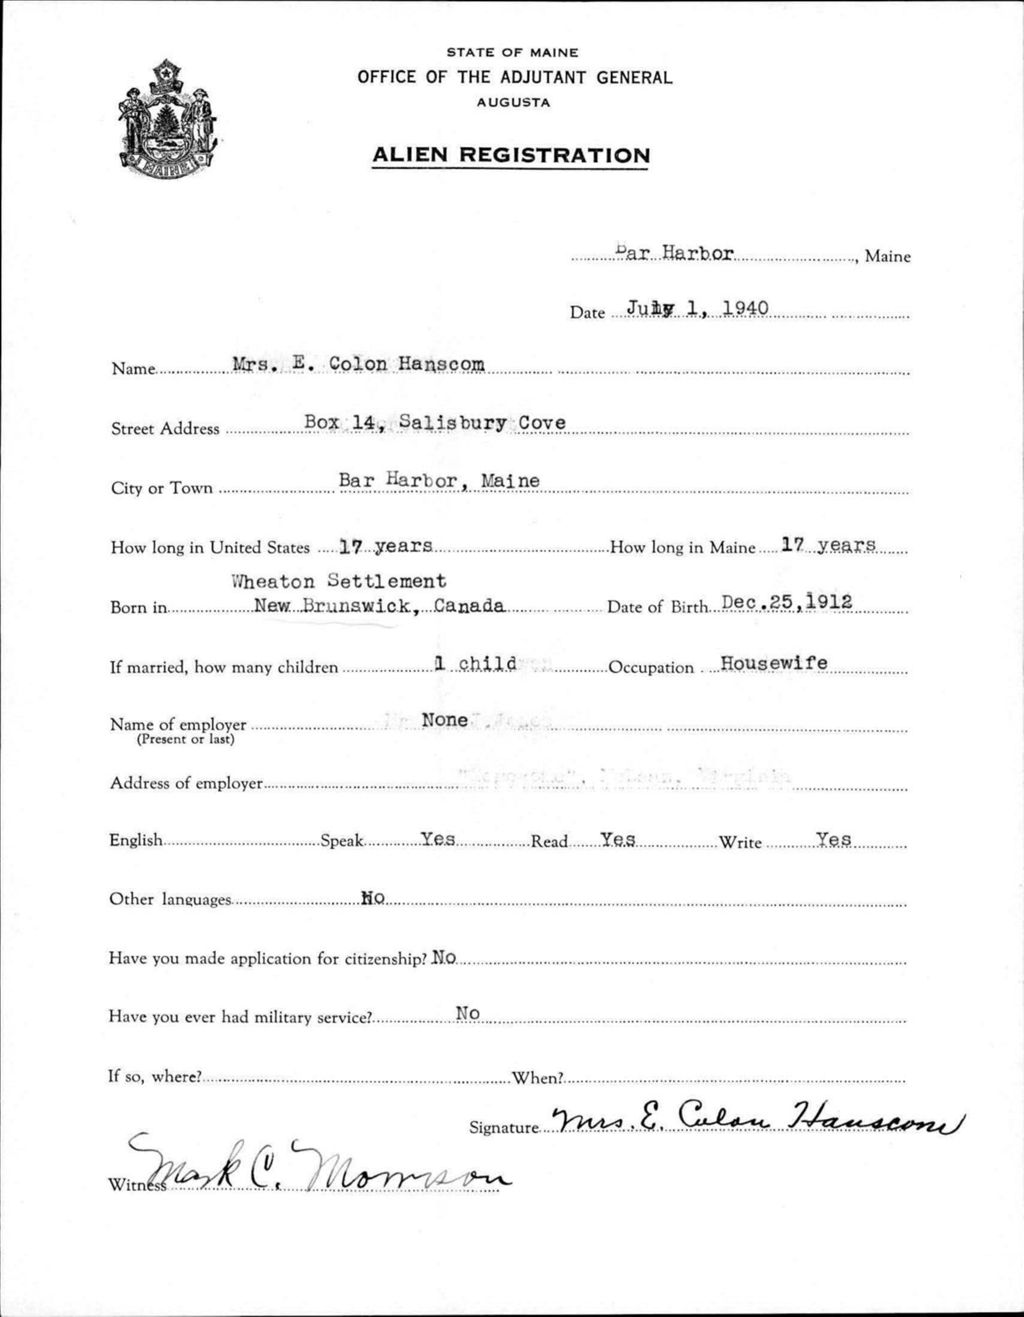 STATE OF MAINE
OFFICE OF THE ADJUTANT GENERAL
AUGUSTA
ALIEN REGISTRATION
MAINE
Bar Harbor, Maine
Date July 1, 1940
Name Mrs. E. Colon Hanscom
Street Address Box 14, Salisbury Cove
City or Town Bar Harbor, Maine
How long in United States 17 years How long in Maine 17 years
Wheaton Settlement
Born in New Brunswick, Canada Date of Birth Dec.25,1912
If married, how many children 1 child Occupation Housewife
Name of employer None
(Present or last)
Address of employer
English Speak Yes Read Yes Write Yes
Other languages No
Have you made application for citizenship? No
Have you ever had military service? No
If so, where? When?
Signature Mrs. E. Colon Hanscom
Witness Mark C. Morrison